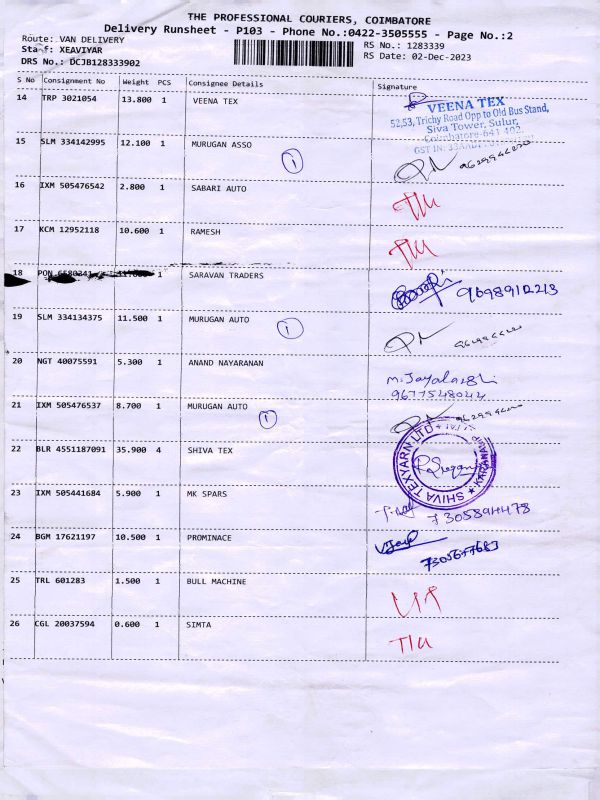 THE PROFESSIONAL COURIERS, COIMBATORE
Delivery Runsheet - P103 - Phone No.:0422-3505555 - Page No.:2
Route: VAN DELIVERY
RS No.: 1283339
Staff: XEAVIYAR
RS Date: 02-Dec-2023
DRS No.: DCJB128333902
S No Consignment No Weight PCS Consignee Details Signature
14 TRP 3021054 13.800 1 VEENA TEX
VEENA TEX
52,53, Trichy Road Opp to Old Bus Stand,
Siva Tower, Sulur,
Coimbatore-641 402.
GST IN:
15 SLM 334142995 12.100 1 MURUGAN ASSO
1
16 IXM 505476542 2.800 1 SABARI AUTO
17 KCM 12952118 10.600 1 RAMESH
18 PON 1 SARAVAN TRADERS
9698912213
19 SLM 334134375 11.500 1 MURUGAN AUTO
1
20 NGT 40075591 5.300 1 ANAND NAYARANAN
9677548044
21 IXM 505476537 8.700 1 MURUGAN AUTO
1
22 BLR 4551187091 35.900 4 SHIVA TEX
SHIVA TEXYARN LTD
23 IXM 505441684 5.900 1 MK SPARS
7305894478
24 BGM 17621197 10.500 1 PROMINACE
25 TRL 601283 1.500 1 BULL MACHINE
26 CGL 20037594 0.600 1 SIMTA